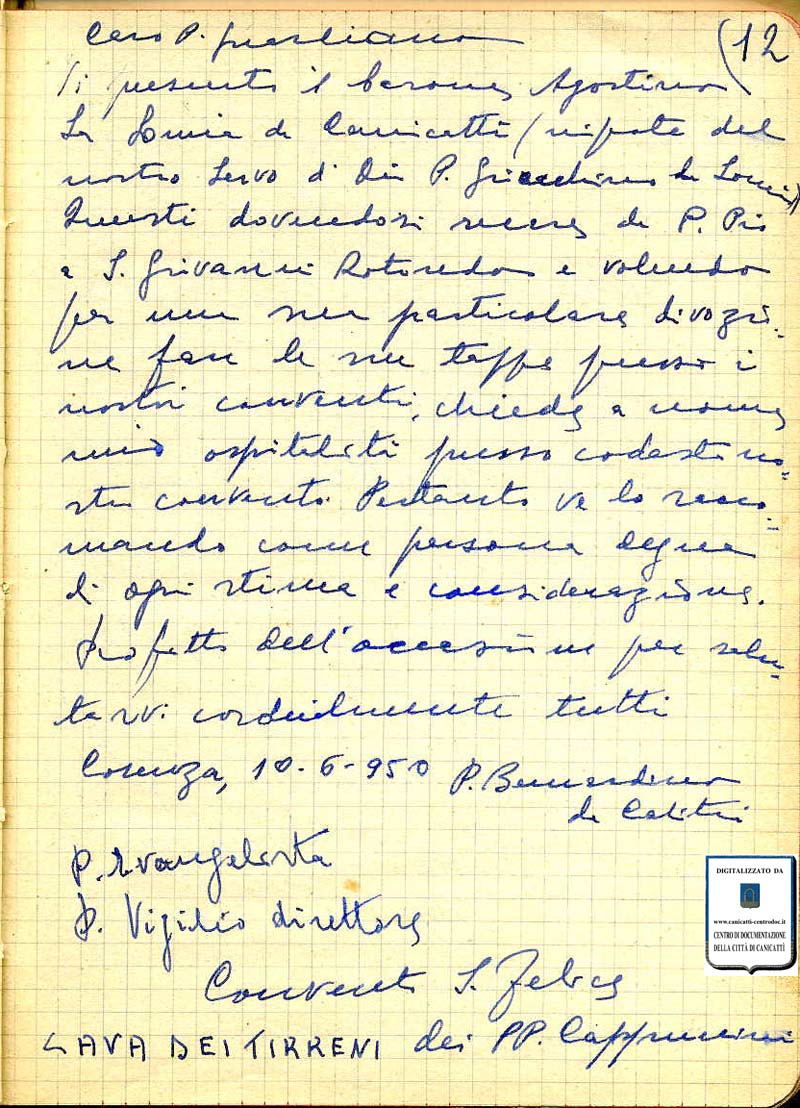 Caro P. Guardiano (12
Vi presento il barone Agostino
La Lomia da Canicattì (nipote del
nostro Servo di Dio P. Gioachino La Lomia)
Questi dovendosi recare da P. Pio
a S. Giovanni Rotondo e volendo
per una sua particolare divozio-
ne fare le sue tappe presso i
nostri conventi, chiede a nome
mio ospitalità presso codesto no-
stro convento. Pertanto ve lo racco-
mando come persona degna
di ogni stima e considerazione.
Profitto dell'occasione per salu-
tarvi cordialmente tutti
Cosenza, 10-6-950 P. Bernardino
da Calitri
P. Evangelista
P. Vigilio direttore
Convento S. Felice
CAVA DEI TIRRENI dei PP. Cappuccini
DIGITALIZZATO DA
www.canicatti-centrodoc.it
CENTRO DI DOCUMENTAZIONE
DELLA CITTÀ DI CANICATTÌ